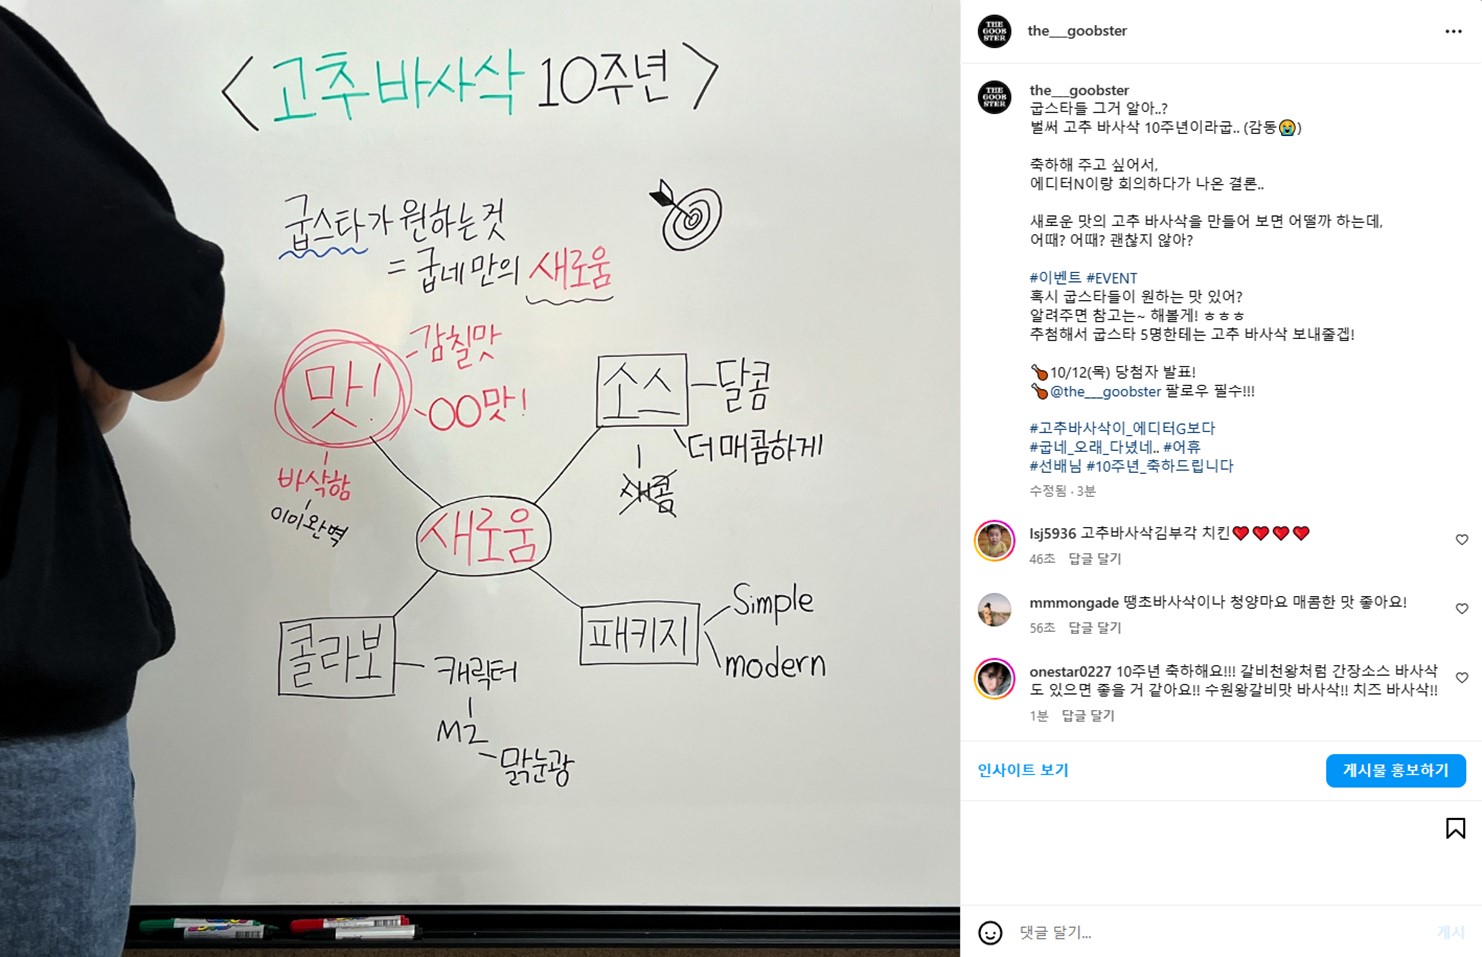 <고추바사삭 10주년>
굽스타가 원하는것
= 굽네만의 새로움
맛!
감칠맛
OO맛!
바삭함
이미완벽
소스
달콤
더매콤하게
새콤
새로움
콜라보
캐릭터
MZ
맑눈광
패키지
Simple
modern
THE
GOOB
STER
the___goobster
THE
GOOB
STER
the___goobster
굽스타들 그거 알아..?
벌써 고추 바사삭 10주년이라굽.. (감동😭)
축하해 주고 싶어서,
에디터N이랑 회의하다가 나온 결론..
새로운 맛의 고추 바사삭을 만들어 보면 어떨까 하는데,
어때? 어때? 괜찮지 않아?
#이벤트 #EVENT
혹시 굽스타들이 원하는 맛 있어?
알려주면 참고는~ 해볼게! ㅎㅎㅎ
추첨해서 굽스타 5명한테는 고추 바사삭 보내줄겝!
🍗10/12(목) 당첨자 발표!
🍗@the___goobster 팔로우 필수!!!
#고추바사삭이_에디터G보다
#굽네_오래_다녔네.. #어휴
#선배님 #10주년_축하드립니다
수정됨 · 3분
lsj5936 고추바사삭김부각 치킨❤️❤️❤️❤️
46초 답글 달기
mmmongade 땡초바사삭이나 청양마요 매콤한 맛 좋아요!
56초 답글 달기
onestar0227 10주년 축하해요!!! 갈비천왕처럼 간장소스 바사삭
도 있으면 좋을 거 같아요!! 수원왕갈비맛 바사삭!! 치즈 바사삭!!
1분 답글 달기
인사이트 보기
게시물 홍보하기
댓글 달기...
게시